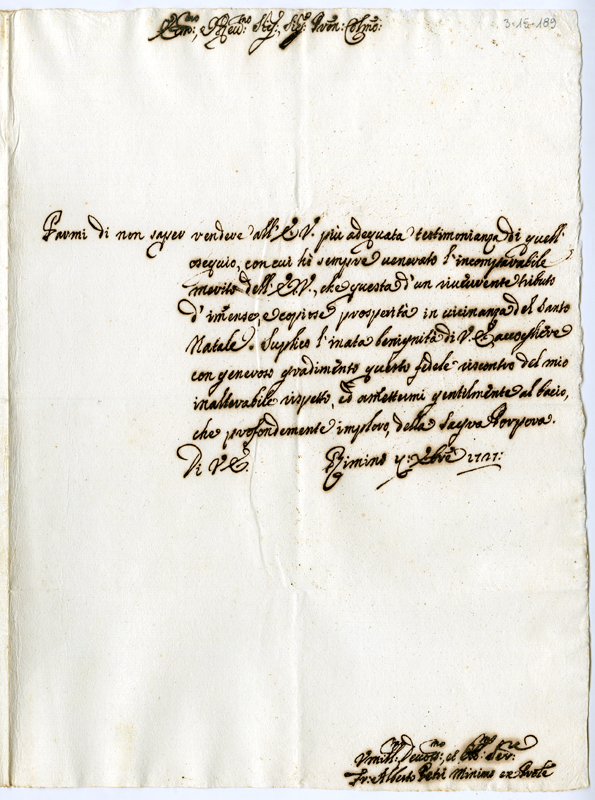 3-15-189
Em.mo, e Rev.mo Sig.r, Sig.r Pron: Colmo:
Parmi di non saper rendere all' E.V. più adequata testimonianza di quell'
osequio, con cui hò sempre venerato l'incomparabile
merito dell' E.V., che questa d'un riverente tributo
d'imense, e copiose prosperità in vicinanza del Santo
Natale. Suplico l'inata benignità di V.E. accogliere
con generoso gradimento questo fedele riscontro del mio
inalterabile rispetto, ed amettermi gentilmente al bacio,
che profondemente imploro, della Sagra Porpora.
Di V.E. Rimino Xbre 1727:
Umill: Devot:mo, et Obl:mo Ser:re
Fr: Alberto Petri Minimo ex-Prov:le